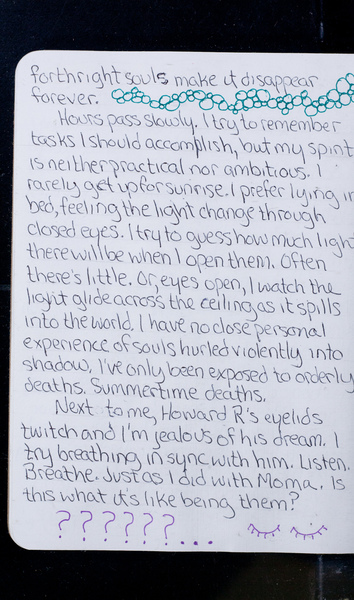 forthright souls make it disappear
forever.
Hours pass slowly. I try to remember
tasks I should accomplish, but my spirit
is neither practical nor ambitious. I
rarely get up for sunrise. I prefer lying in
bed, feeling the light change through
closed eyes. I try to guess how much light
there will be when I open them. Often
there's little. Or, eyes open, I watch the
light glide across the ceiling as it spills
into the world. I have no close personal
experience of souls hurled violently into
shadow. I've only been exposed to orderly
deaths. Summertime deaths.
Next to me, Howard R's eyelids
twitch and I'm jealous of his dream. I
try breathing in sync with him. Listen.
Breathe. Just as I did with Moma. Is
this what it's like being them?
? ? ? ? ? ? ...